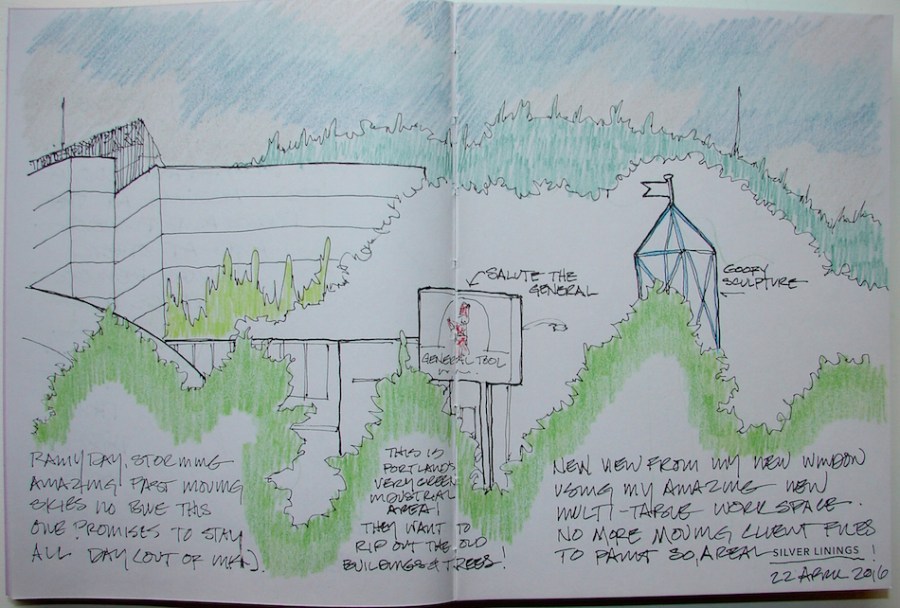 SALUTE THE
GENERAL
GOOFY
SCULPTURE
GENERAL TOOL
RAINY DAY, STORMING
AMAZING FAST MOVING
SKIES NO BLUE THIS
ONE PROMISES TO STAY
ALL DAY (OUT OF INK).
THIS IS
PORTLANDS
VERY GREEN
INDUSTRIAL
AREA!
THEY WANT TO
RIP OUT THE OLD
BUILDINGS & TREES!
NEW VIEW FROM MY NEW WINDOW
USING MY AMAZING NEW
MULTI-TABLE WORK SPACE.
NO MORE MOVING CLIENT FILES
TO PAINT SO, A REAL SILVER LININGS!
22 APRIL 2016